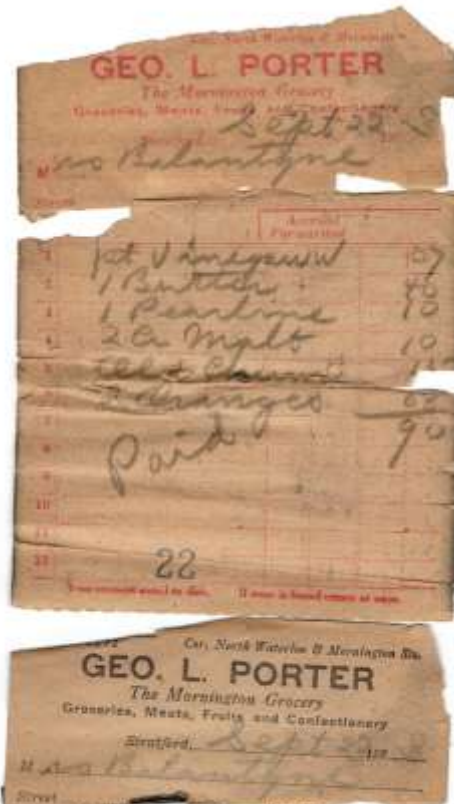 Cor. North Waterloo & Mornington
GEO. L. PORTER
The Mornington Grocery
Groceries, Meats, Fruits and Confectionery
Sept 22 8
Mrs Balantyne
Street
Account
Forwarded
1 pt Vinegar 07
2 1 Butter 40
1 Pearline 10
4 10
Oranges
90
Paid
10
11
12
22
Your account stated to date. If error is found return at once.
Cor. North Waterloo & Mornington Sts.
GEO. L. PORTER
The Mornington Grocery
Groceries, Meats, Fruits and Confectionery
Stratford, Sept 22 8
Mrs Balantyne
Street